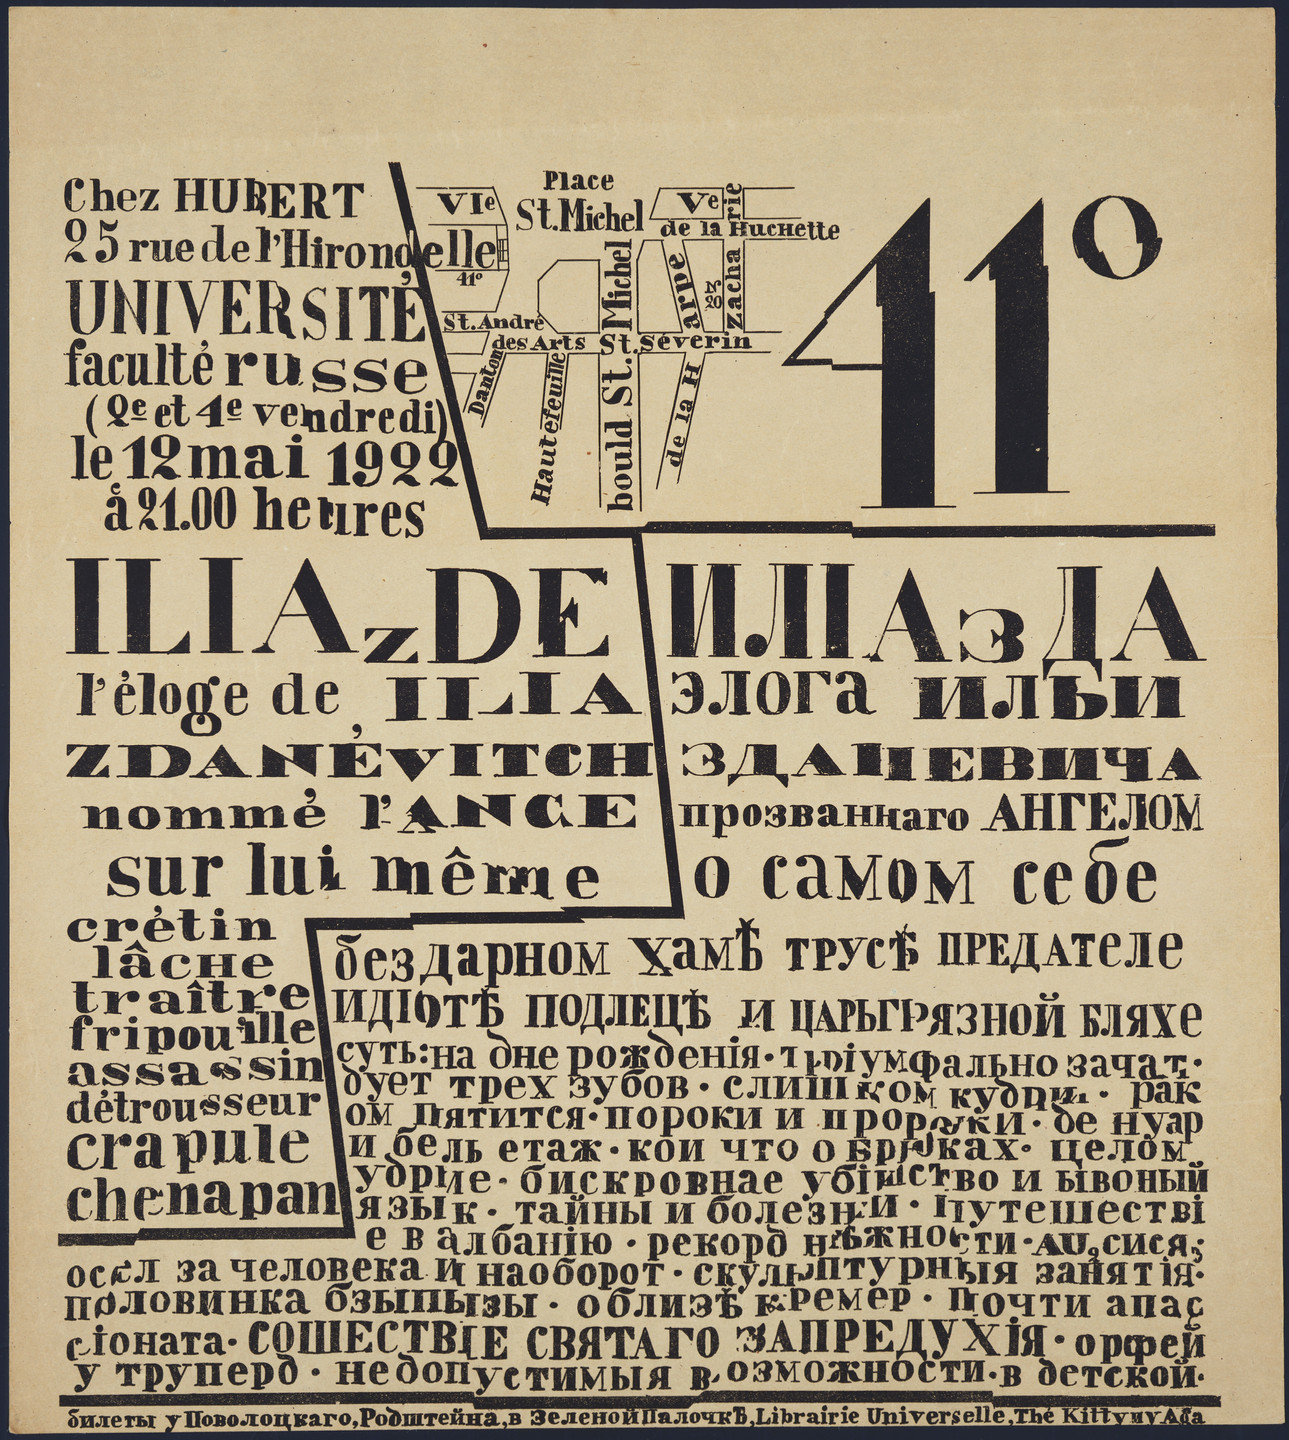 Chez HUBERT
25 rue de l'Hirondelle
UNIVERSITÉ
faculté russe
(2e et 4e vendredi)
le 12 mai 1922
à 21.00 heures
VIe
Place
St. Michel
Ve
de la Huchette
zacharie
41º
N 20
bould St. Michel
de la Harpe
St. André
des Arts St. Séverin
Danton
Hautefeuille
41º
ILIAzDE
l'éloge de ILIA
ZDANÉVITCH
nommé l'ANGE
sur lui même
ИЛІАзДА
элога ИЛЬИ
ЗДАНЕВИЧА
прозваннаго АНГЕЛОМ
о самом себе
crétin
lâche
traître
fripouille
assassin
détrousseur
crapule
chenapan
бездарном хамѣ трусѣ предателе
идіотѣ подлецѣ и царьгрязной бляхе
суть: на дне рожденія · тріумфально зачат ·
дует трех зубов · слишком кудри · рак
ом пятится · пороки и пророки · де нуар
и бель етаж · кои что о брюках · целом
удрие · бискровнае убійство и ывоный
язык · тайны и болезни · путешестві
е в албанію · рекорд нѣжности ·
осел за человека и наоборот · скульптурныя занятія ·
половинка бзыпызы · о близѣ кремер · почти апас
сіоната · СОШЕСТВІЕ СВЯТАГО ЗАПРЕДУХІЯ · орфей
у труперд · недопустимыя возможности · в детской ·
билеты у Поволоцкаго, Родштейна, в Зеленой Палочкѣ, Librairie Universelle, The Kitty